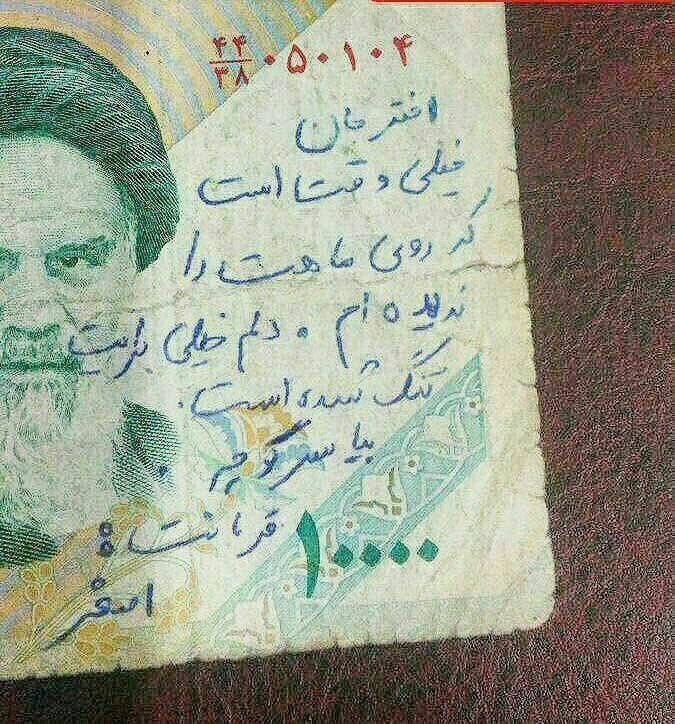 ۴۴/۳۸ ۰۵۰۱۰۴
اختر جان
خیلی وقت است
که روی ماهت را
ندیده ام ه دلم خیلی برایت
تنگ شده است.
بیا سر کوچه .
قربانت:
اصغر
۱۰۰۰۰